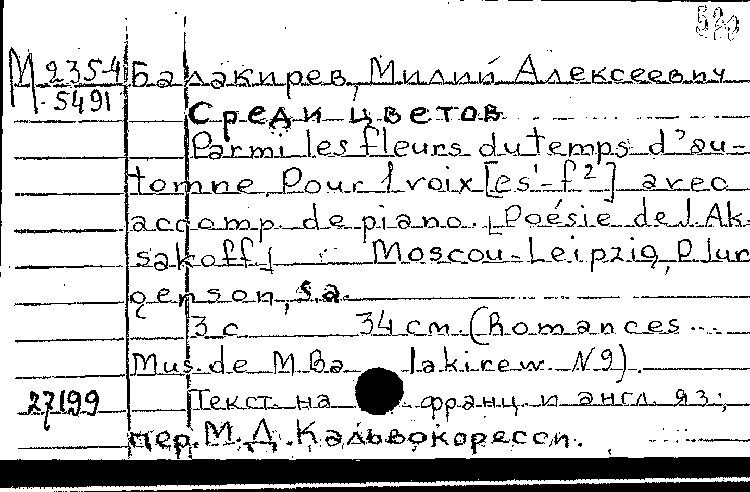 М 2354 Балакирев, Милий Алексеевич
М. 5491
Среди цветов
Parmi les fleurs du temps d'au-
tomne. Pour 1 voix [es¹-f²] avec
accomp. de piano. [Poésie de J. Ak-
sakoff] Moscou-Leipzig, P. Jur
genson, s.a.
3 с 34 см. (Romances ...
Mus. de M. Ba lakirew. N9).
27199 Текст на франц. и англ. яз.;
пер. М.Д. Кальвокоресси.